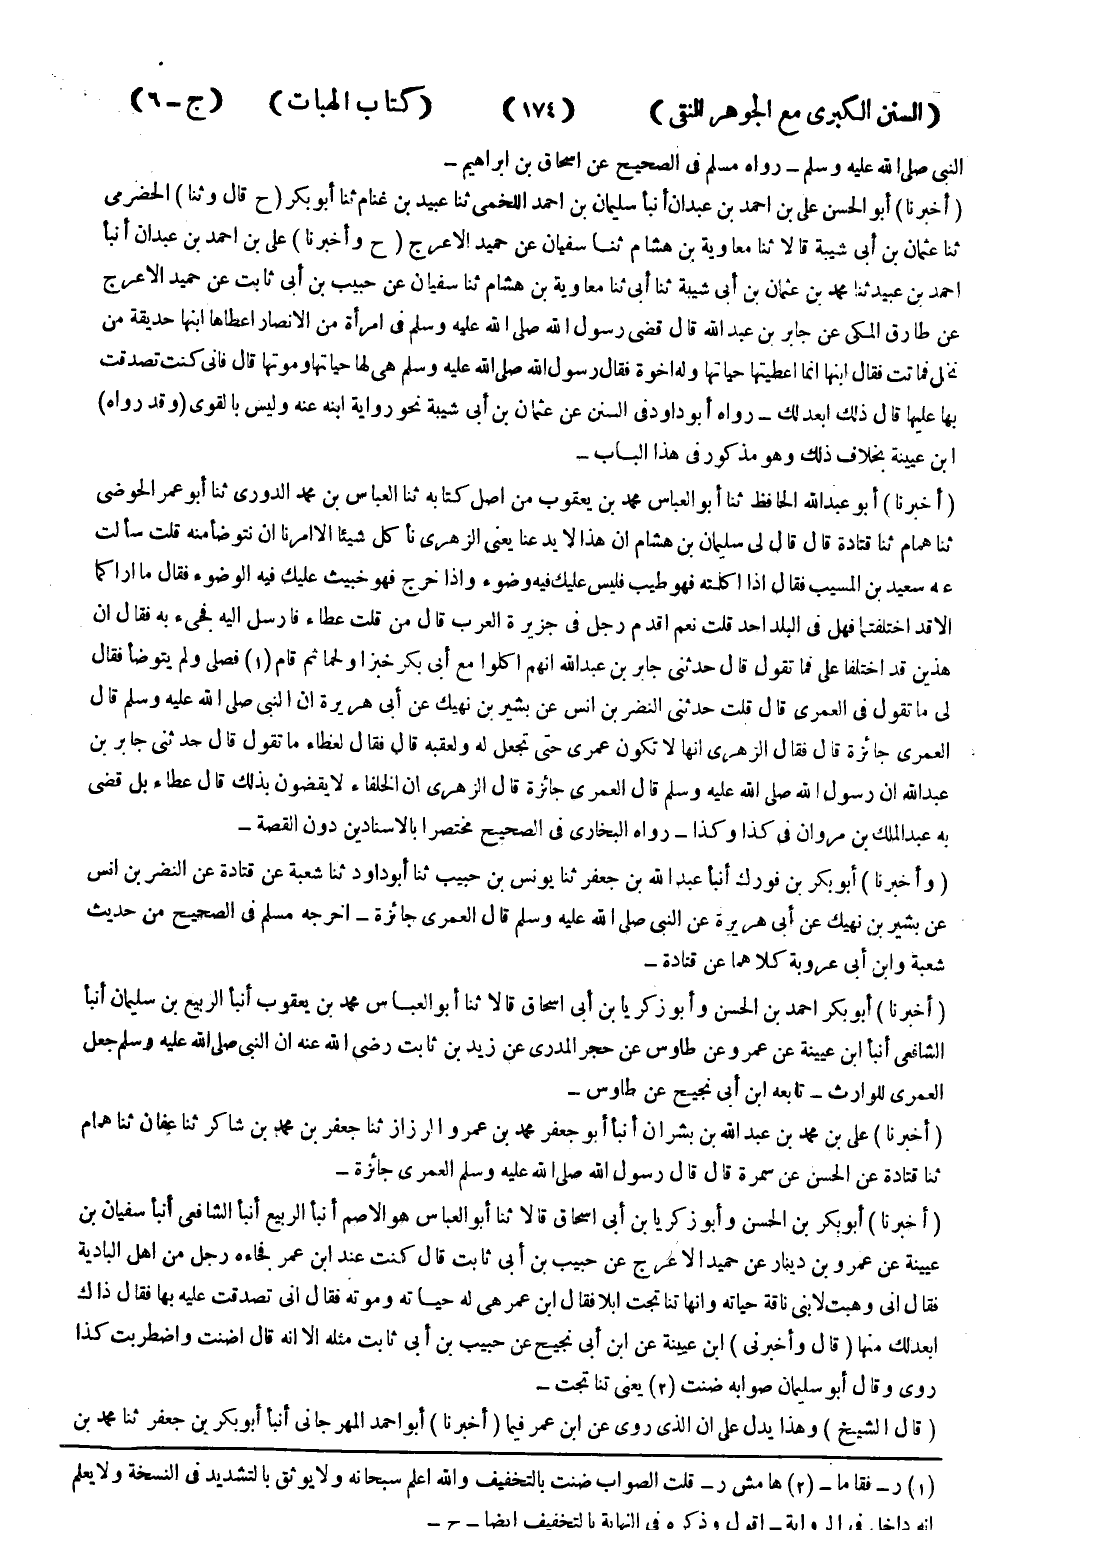 (السنن الكبرى مع الجوهر النقى) (١٧٤) (كتاب الهبات) (ج-٦)
النبى صلى الله عليه وسلم - رواه مسلم فى الصحيح عن اسحاق بن ابراهيم -
(أخبرنا) أبو الحسن على بن احمد بن عبدان أنبأ سليمان بن احمد اللخمى ثنا عبيد بن غنام ثنا أبو بكر (ح قال وثنا) الحضرمى
ثنا عثمان بن أبى شيبة قالا ثنا معاوية بن هشام ثنا سفيان عن حميد الاعرج (ح وأخبرنا) على بن احمد بن عبدان أنبأ
احمد بن عبيد ثنا محمد بن عثمان بن أبى شيبة ثنا أبى ثنا معاوية بن هشام ثنا سفيان عن حبيب بن أبى ثابت عن حميد الاعرج
عن طارق المكى عن جابر بن عبد الله قال قضى رسول الله صلى الله عليه وسلم فى امرأة من الانصار اعطاها ابنها حديقة من
نخل فماتت فقال ابنها انما اعطيتها حياتها وله اخوة فقال رسول الله صلى الله عليه وسلم هى لها حياتها وموتها قال فانى كنت تصدقت
بها عليها قال ذلك ابعد لك - رواه أبو داود فى السنن عن عثمان بن أبى شيبة نحو رواية ابنه عنه وليس بالقوى (وقد رواه)
ابن عيينة بخلاف ذلك وهو مذكور فى هذا الباب -
(أخبرنا) أبو عبدالله الحافظ ثنا أبو العباس محمد بن يعقوب من اصل كتابه ثنا العباس بن محمد الدورى ثنا أبو عمر الحوضى
ثنا همام ثنا قتادة قال قال لى سليمان بن هشام ان هذا لا يدعنا يعنى الزهرى نأكل شيئا الا امرنا ان نتوضأ منه قلت سألت
عنه سعيد بن المسيب فقال اذا اكلته فهو طيب فليس عليك فيه وضوء واذا خرج فهو خبيث عليك فيه الوضوء فقال ما اراكما
الا قد اختلفتما فهل فى البلد احد قلت نعم اقدم رجل فى جزيرة العرب قال من قلت عطاء فارسل اليه فجىء به فقال ان
هذين قد اختلفا على فما تقول قال حدثنى جابر بن عبدالله انهم اكلوا مع أبى بكر خبزا ولحما ثم قام (١) فصلى ولم يتوضأ فقال
لى ما تقول فى العمرى قال قلت حدثنى النضر بن انس عن بشير بن نهيك عن أبى هريرة ان النبى صلى الله عليه وسلم قال
العمرى جائزة قال فقال الزهرى انها لا تكون عمرى حتى تجعل له ولعقبه قال فقال لعطاء ما تقول قال حدثنى جابر بن
عبدالله ان رسول الله صلى الله عليه وسلم قال العمرى جائزة قال الزهرى ان الخلفاء لا يقضون بذلك قال عطاء بل قضى
به عبدالملك بن مروان فى كذا وكذا - رواه البخارى فى الصحيح مختصرا بالاسنادين دون القصة -
(وأخبرنا) أبو بكر بن فورك أنبأ عبد الله بن جعفر ثنا يونس بن حبيب ثنا أبوداود ثنا شعبة عن قتادة عن النضر بن انس
عن بشير بن نهيك عن أبى هريرة عن النبى صلى الله عليه وسلم قال العمرى جائزة - اخرجه مسلم فى الصحيح من حديث
شعبة وابن أبى عروبة كلاهما عن قتادة -
(أخبرنا) أبوبكر احمد بن الحسن وأبو زكريا بن أبى اسحاق قالا ثنا أبو العباس محمد بن يعقوب أنبأ الربيع بن سليمان أنبأ
الشافعى أنبأ ابن عيينة عن عمرو عن طاوس عن حجر المدرى عن زيد بن ثابت رضى الله عنه ان النبى صلى الله عليه وسلم جعل
العمرى للوارث - تابعه ابن أبى نجيح عن طاوس -
(أخبرنا) على بن محمد بن عبد الله بن بشران أنبأ أبو جعفر محمد بن عمرو الرزاز ثنا جعفر بن محمد بن شاكر ثنا عفان ثنا همام
ثنا قتادة عن الحسن عن سمرة قال قال رسول الله صلى الله عليه وسلم العمرى جائزة -
(أخبرنا) أبوبكر بن الحسن وأبو زكريا بن أبى اسحاق قالا ثنا أبو العباس هو الاصم أنبأ الربيع أنبأ الشافعى أنبأ سفيان بن
عيينة عن عمرو بن دينار عن حميد الاعرج عن حبيب بن أبى ثابت قال كنت عند ابن عمر فجاءه رجل من اهل البادية
فقال انى وهبت لابنى ناقة حياته وانها تناتجت ابلا فقال ابن عمر هى له حياته وموته فقال انى تصدقت عليه بها فقال ذاك
ابعدلك منها (قال وأخبرنى) ابن عيينة عن ابن أبى نجيح عن حبيب بن أبى ثابت مثله الا انه قال اضنت واضطربت كذا
روى وقال أبو سليمان صوابه ضنت (٢) يعنى تناتجت -
(قال الشيخ) وهذا يدل على ان الذى روى عن ابن عمر فيما (أخبرنا) أبو احمد المهرجانى أنبأ أبو بكر بن جعفر ثنا محمد بن
(١) ر- فقاما - (٢) هامش ر- قلت الصواب ضنت بالتخفيف والله اعلم سبحانه ولا يوثق بالتشديد فى النسخة ولا يعلم
انه داخل فى الرواية - اقول وذكره فى النهاية بالتخفيف ايضا - ح -